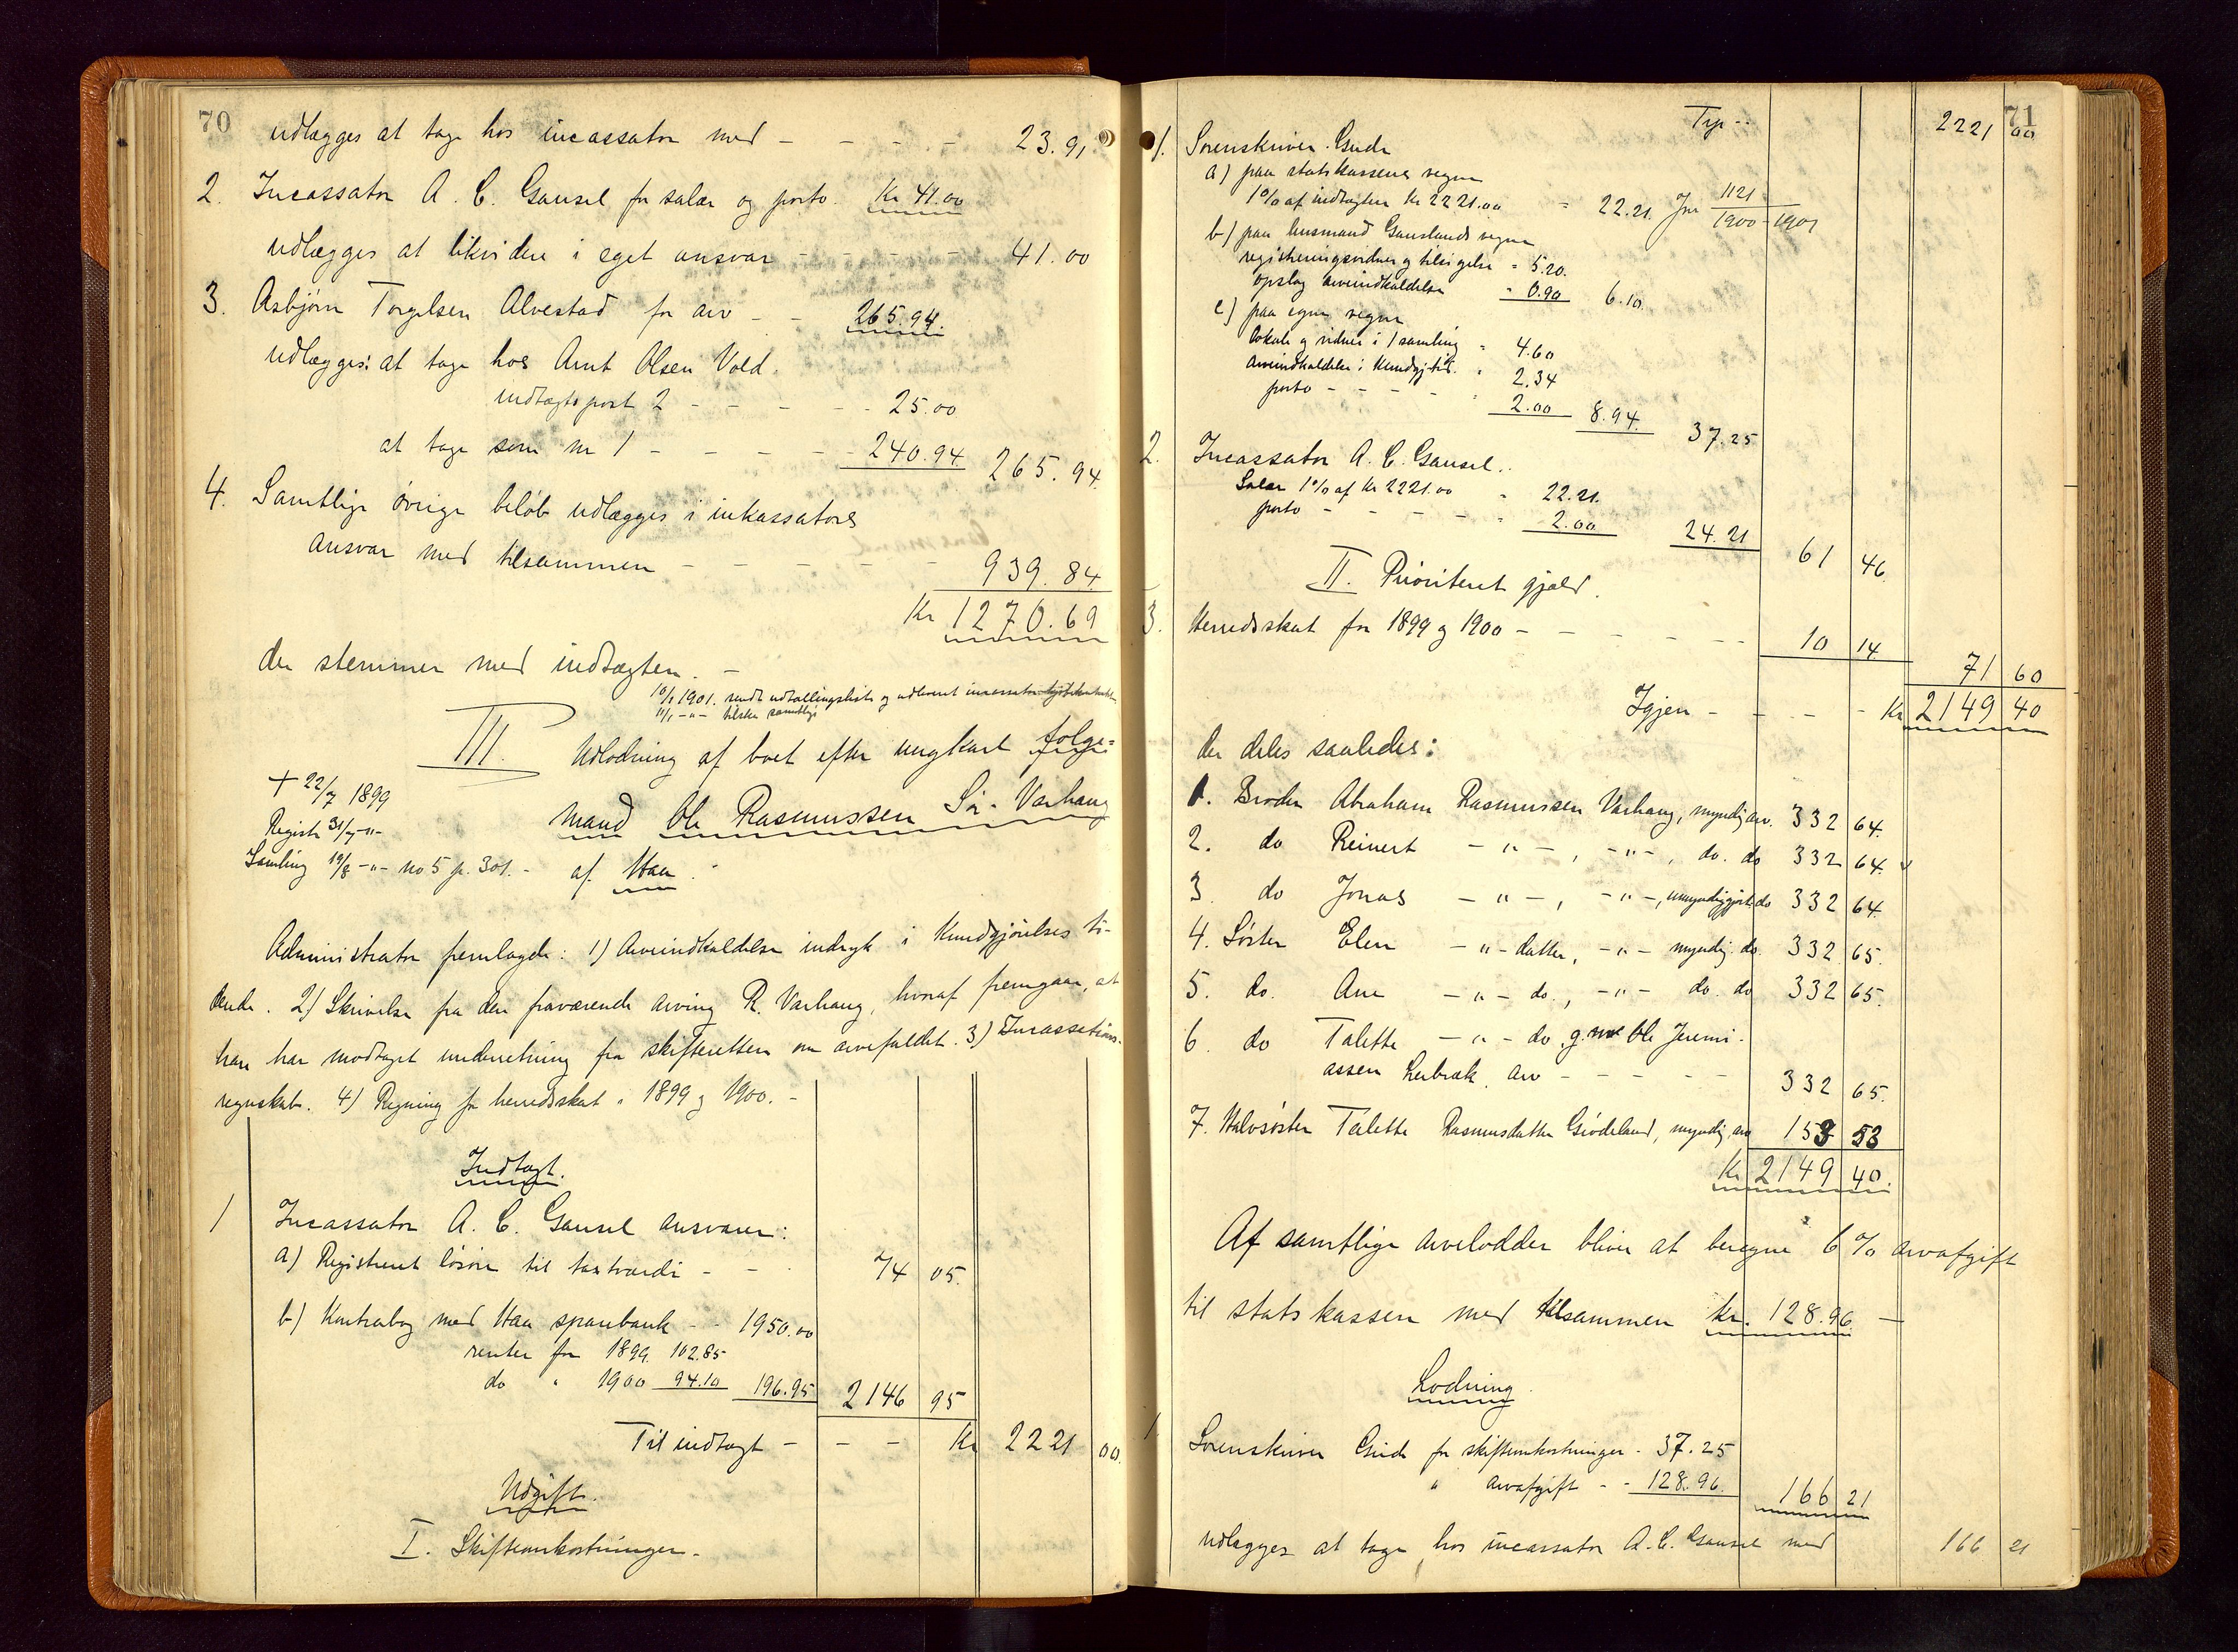 70
udlægges at tage hos incassator med - - - - 23.91
2. Incassator A. C. Gausel for salær og porto. Kr 41.00
udlægges at likvidere i eget ansvar - - - - 41.00
3. Asbjørn Torgilsen Alvestad for arv - - 265.94.
udlægges: at tage hos Arnt Olsen Vold.
indtægtspost 2 - - - - - 25.00
at tage som nr 1 - - - - - 240.94 265.94.
4. Samtlige øvrige beløb udlægges i inkassators
ansvar med tilsammen - - - - - 939.84
Kr 1270.69
der stemmer med indtægten. -
10/1 1901. sendt udtællingsliste og udlevert incassator
11/1 -"- tilsker samtlige
III. Udlodning af boet efter ungkarl følge=
mand Ole Rasmussen Sør-Varhaug
af Haa.
+ 22/7 1899
Registr 31/7 -"-
Samling 19/8 -"- no 5 p. 301. -
Administrator fremlagde: 1) Arveindkaldelse indryk i Kundgjørelses ti-
dende. 2) Skrivelse fra den fraværende arving R. Varhaug, hvoraf fremgaar, at
han har modtaget underretning fra skifteretten om arvefaldet. 3) Incassations-
regnskab. 4) Regning for herredsskat " 1899 og 1900. -
Indtægt.
1 Incassator A. C. Gausel ansvarer:
a) Registreret løsøre til taxtværdi - - - 74 05.
b) Kontrabog med Haa sparebank - - 1950.00
renter for 1899 102.85
do " 1900 94.10 196.95 2146 95
Til indtægt - - - Kr 2221 00.
Udgift.
I. Skifteomkostninger. -
71
Trp -- 2221 00
1. Sorenskriver Gude
a) paa statskassens vegne
1% af indtægten Kr 2221.00 = 22.21. Jnr 1121/1900-1901
b) paa husmand Gauslands vegne
registreringsvidner og tilsigelse = 5.20.
opslag arveindkaldelse - 0.90 6.10.
c) paa egne vegne
lokale og vidner i 1 samling - 4.60
arveindkaldelse i Kundgj.tid. " 2.34
porto - - - - " 2.00 8.94. 37.25
2. Incassator A. C. Gausel..
Salær 1% af Kr 2221.00 = 22.21.
porto - - - - - " 2.00 24.21 61 46.
II. Prioriteret gjæld.
3. Herredsskat for 1899 og 1900 - - - - - - 10 14
71 60
Igjen - - - - Kr 2149 40
der deles saaledes:
1. Broder Abraham Rasmussen Varhaug, myndig arv. 332 64.
2. do Reinert - " - , - " - , do. do 332 64.
3. do Jonas - " - , - " - , umyndiggjort do 332 64.
4. Søster Elen - " - datter, - " - myndig. do. 332 65.
5. do. Ane - " - do., - " - do. do 332 65.
6. do Talette - " - do. g. m Ole Jeremi-
assen Lerbræk. arv - - - - - 332 65.
7. Halvsøster Talette Rasmusdatter Grødeland, myndig, arv 153 53
Kr 2149 40.
Af samtlige arvelodder bliver at beregne 6% arvafgift
til statskassen med tilsammen Kr. 128.96. -
Lodning.
1 Sorenskriver Gude for skifteomkostninger - 37.25
" arvafgift - - 128.96. 166 21
udlægges at tage hos incassator A. C. Gausel med 166 21